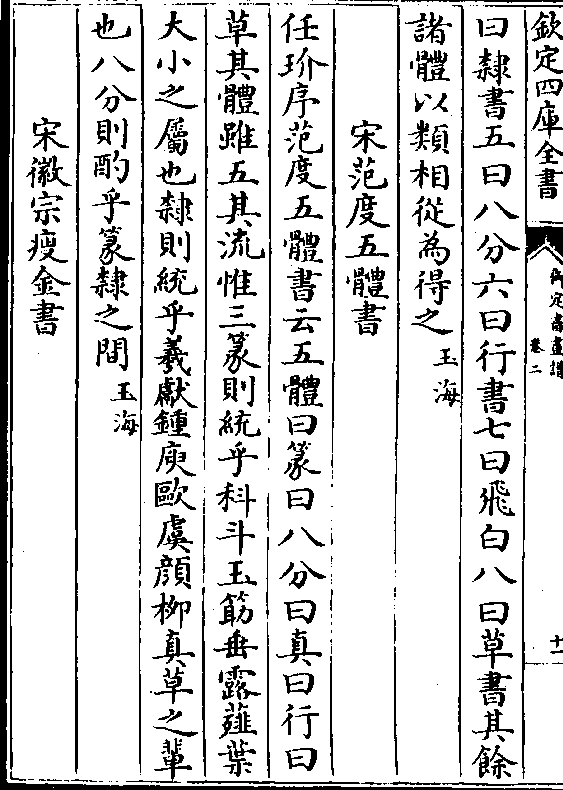 欽定四庫全書
御定書畫譜
卷二
十一
曰隸書五曰八分六曰行書七曰飛白八曰草書其餘
諸體以類相從為得之玉海
宋范度五體書
任玠序范度五體書云五體曰篆曰八分曰真曰行曰
草其體雖五其流惟三篆則統乎科斗玉筯垂露薤葉
大小之屬也隸則統乎羲獻鍾庾歐虞顔柳真草之輩
也八分則酌乎篆隸之間玉海
宋徽宗瘦金書